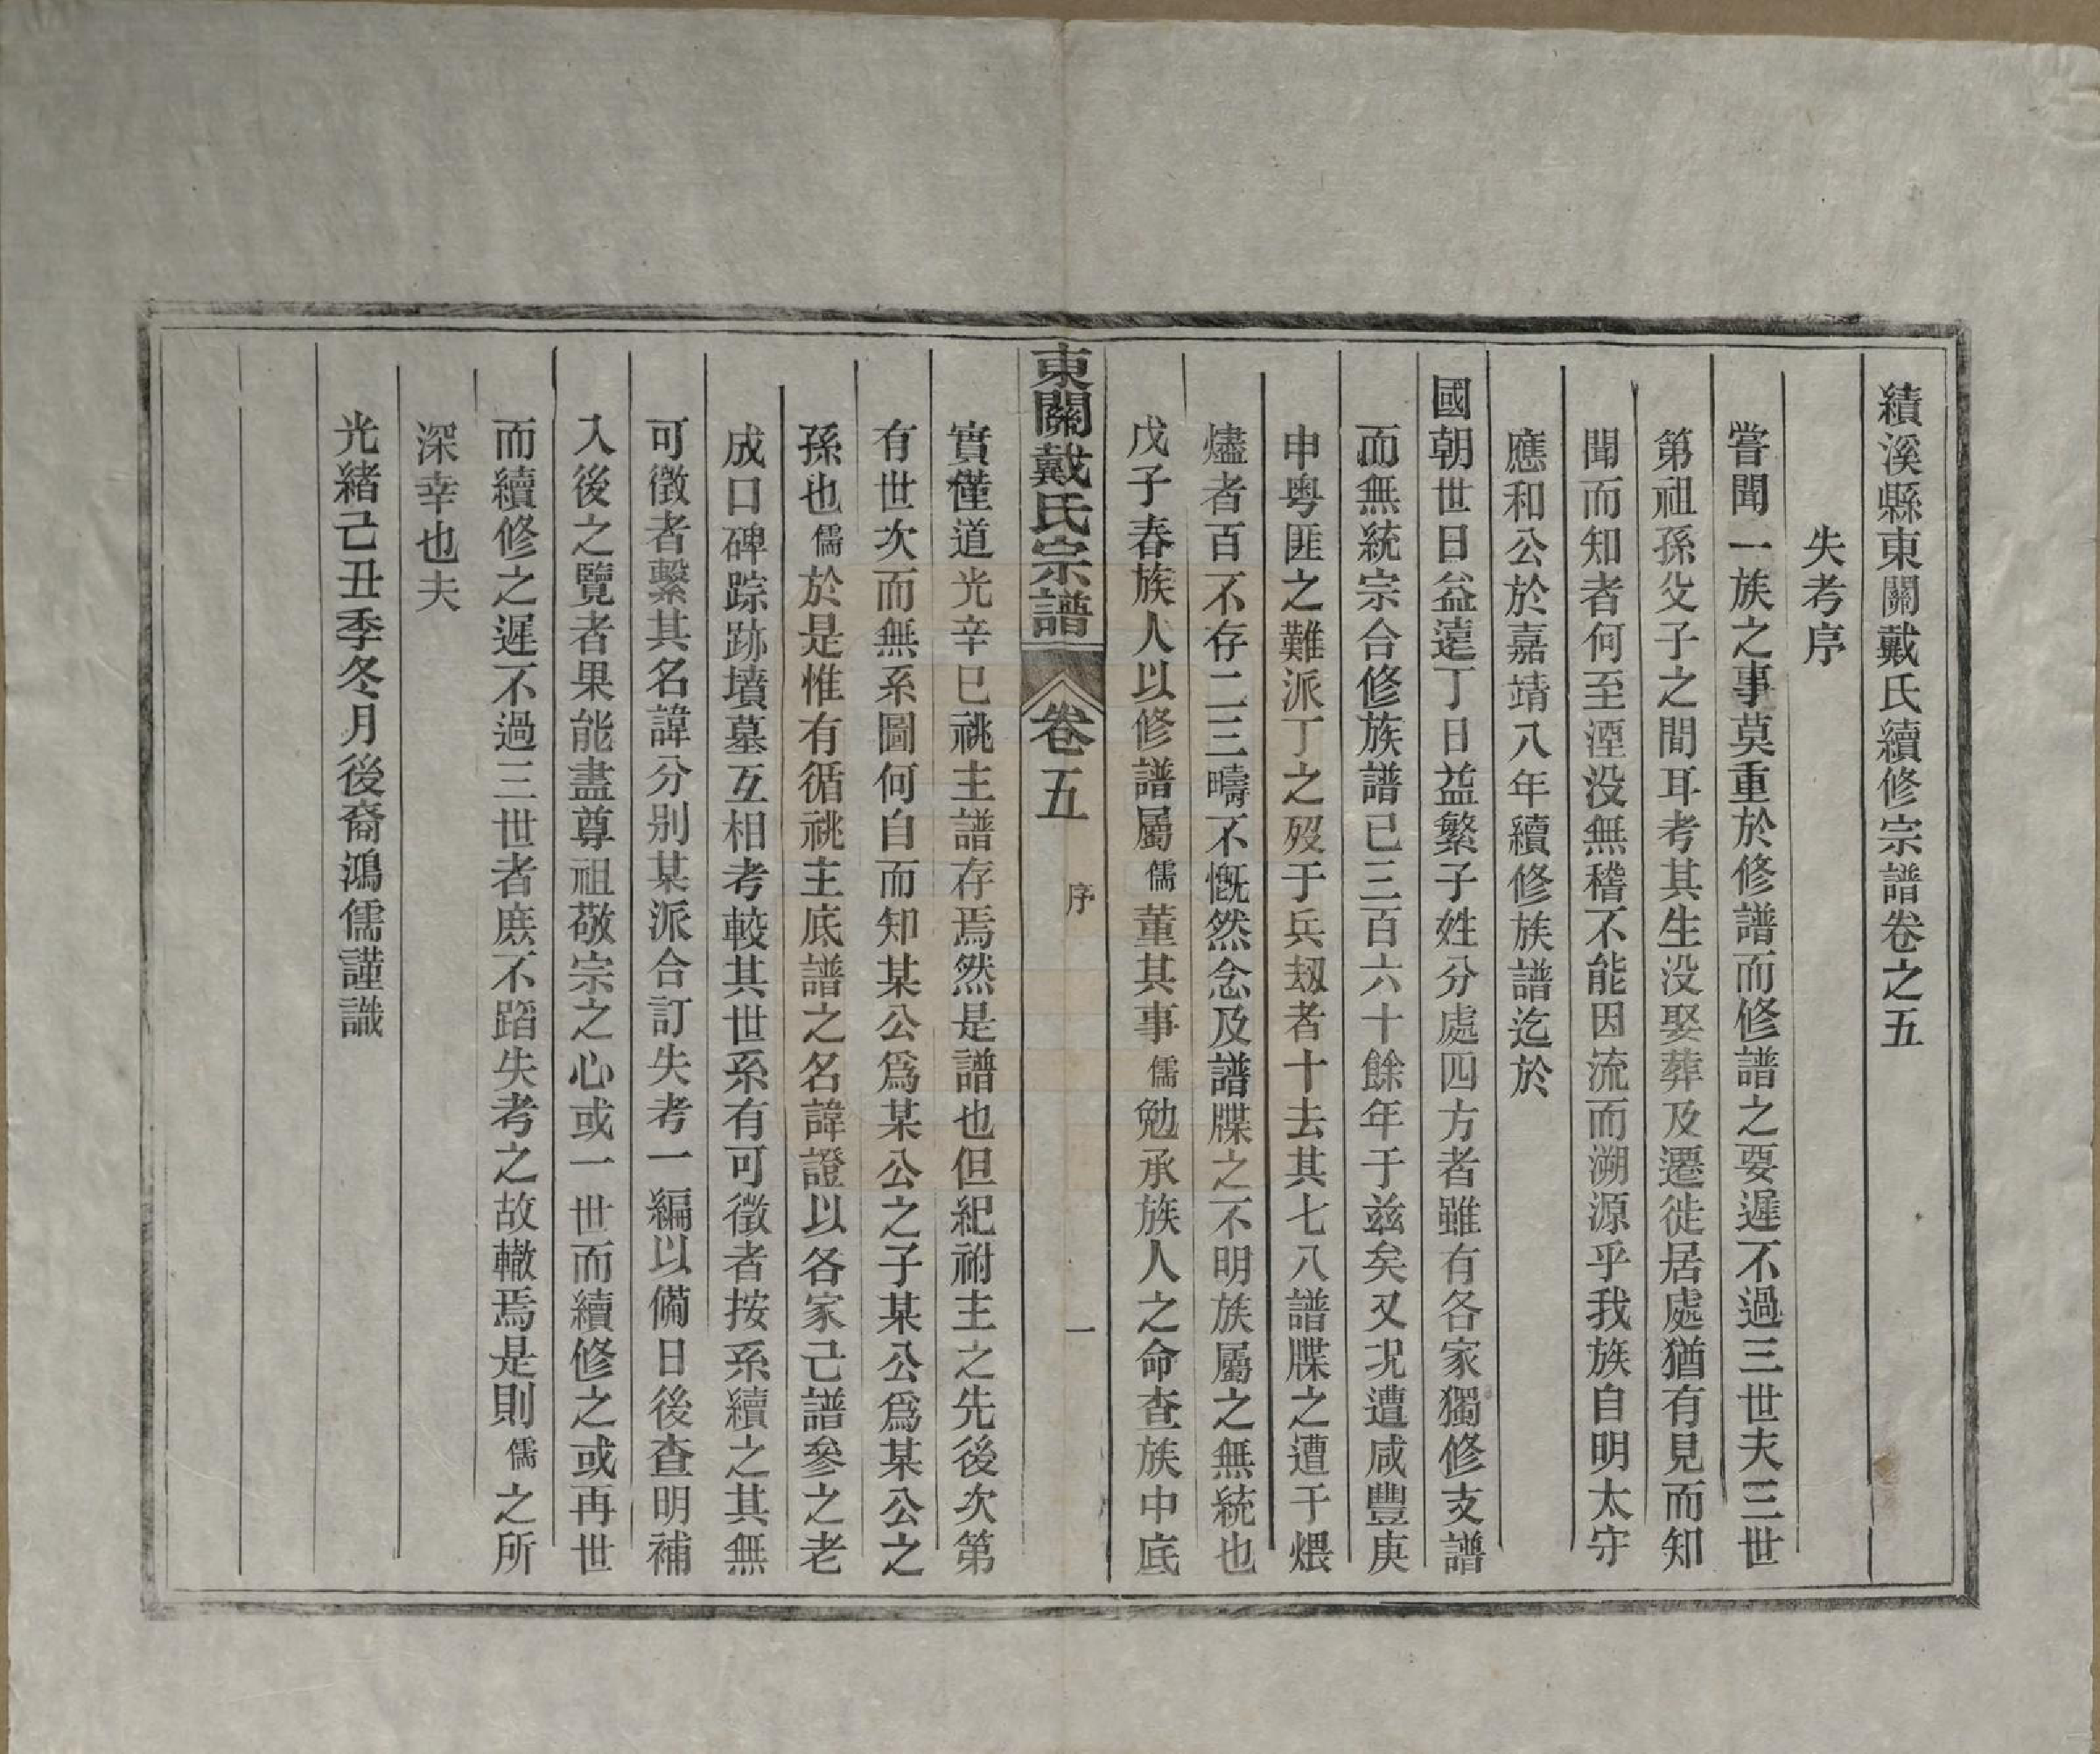 績溪縣東關戴氏續修宗譜卷之五
失考序
嘗聞一族之事莫重於修譜而修譜之要遲不過三世夫三世
第祖孫父子之間耳考其生没娶葬及遷徙居處猶有見而知
聞而知者何至湮没無稽不能因流而溯源乎我族自明太守
應和公於嘉靖八年續修族譜迄於
國朝世日益遠丁日益繁子姓分處四方者雖有各家獨修支譜
而無統宗合修族譜已三百六十餘年于兹矣又况遭咸豐庚
申粤匪之難派丁之殁于兵刼者十去其七八譜牒之遭于煨
燼者百不存二三疇不慨然念及譜牒之不明族屬之無統也
戊子春族人以修譜屬儒董其事儒勉承族人之命查族中底
東關戴氏宗譜 卷五 序 一
實僅道光辛巳祧主譜存焉然是譜也但紀祔主之先後次第
有世次而無系圖何自而知某公爲某公之子某公爲某公之
孫也儒於是惟有循祧主底譜之名諱證以各家己譜參之老
成口碑踪跡墳墓互相考較其世系有可徵者按系續之其無
可徵者繫其名諱分别某派合訂失考一編以備日後查明補
入後之覽者果能盡尊祖敬宗之心或一世而續修之或再世
而續修之遲不過三世者庶不蹈失考之故轍焉是則儒之所
深幸也夫
光緒己丑季冬月後裔鴻儒謹識